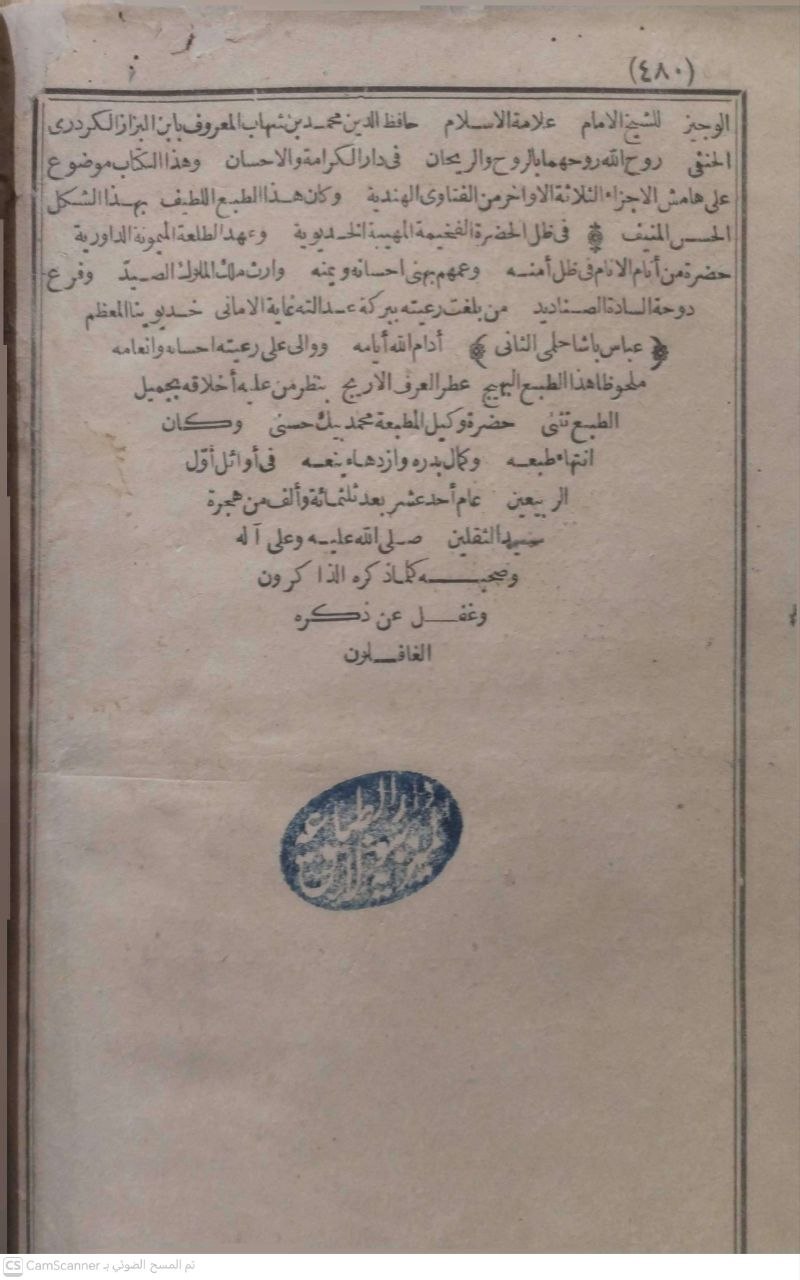 (٤٨٠)
الوجيز للشيخ الامام علامة الاسلام حافظ الدين محمد بن شهاب المعروف بابن البزاز الكردرى
الحنفى روح الله روحهما بالروح والريحان فى دار الكرامة والاحسان وهذا الكتاب موضوع
على هامش الاجزاء الثلاثة الاواخر من الفتاوى الهندية وكان هذا الطبع اللطيف بهذا الشكل
الحسن المنيف * فى ظل الحضرة الفخيمة المهيبة الخديوية وعهد الطلعة الميمونة الداورية
حضرة من أنام الانام فى ظل أمنه وعمهم بهنى احسانه ويمنه وارث ملك الملوك الصيد وفرع
دوحة السادة الصناديد من بلغت رعيته ببركة عدالته غاية الامانى خديوينا المعظم
﴿عباس باشا حلمى الثانى﴾ أدام الله أيامه ووالى على رعيته احسانه وانعامه
ملحوظا هذا الطبع البهيج عطر العرف الاريج بنظر من عليه أخلاقه بجميل
الطبع تثنى حضرة وكيل المطبعة محمد بيك حسنى وكان
انتهاء طبعه وكمال بدره وازدهاء ينعه فى أوائل أول
الربيعين عام أحد عشر بعد ثلثمائة وألف من هجرة
سيد الثقلين صلى الله عليه وعلى آله
وصحبه كلما ذكره الذاكرون
وغفل عن ذكره
الغافلون
دار الطباعة
CS CamScanner تم المسح الضوئي بـ